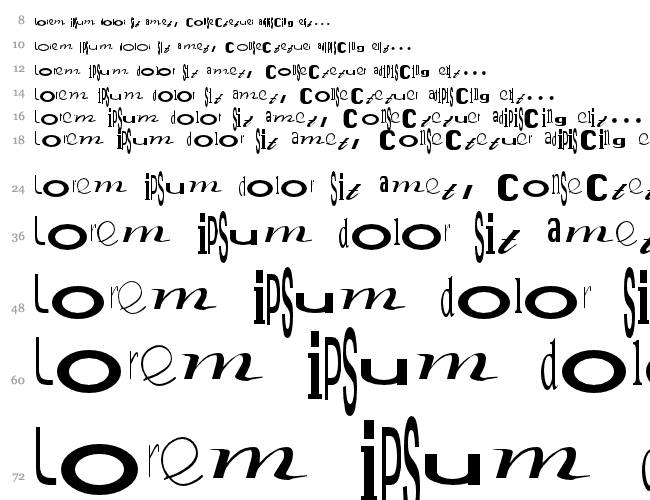 8 Lorem ipsum dolor sit amet, ConseCtetuer adipisCing elit...
10 Lorem ipsum dolor sit amet, ConseCtetuer adipisCing elit...
12 Lorem ipsum dolor sit amet, ConseCtetuer adipisCing elit...
14 Lorem ipsum dolor sit amet, ConseCtetuer adipisCing elit...
16 Lorem ipsum dolor sit amet, ConseCtetuer adipisCing elit...
18 Lorem ipsum dolor sit amet, ConseCtetuer adipisCing elit.
24 Lorem ipsum dolor sit amet, ConseCte
36 Lorem ipsum dolor sit ame
48 Lorem ipsum dolor si
60 Lorem ipsum dol
72 Lorem ipsum